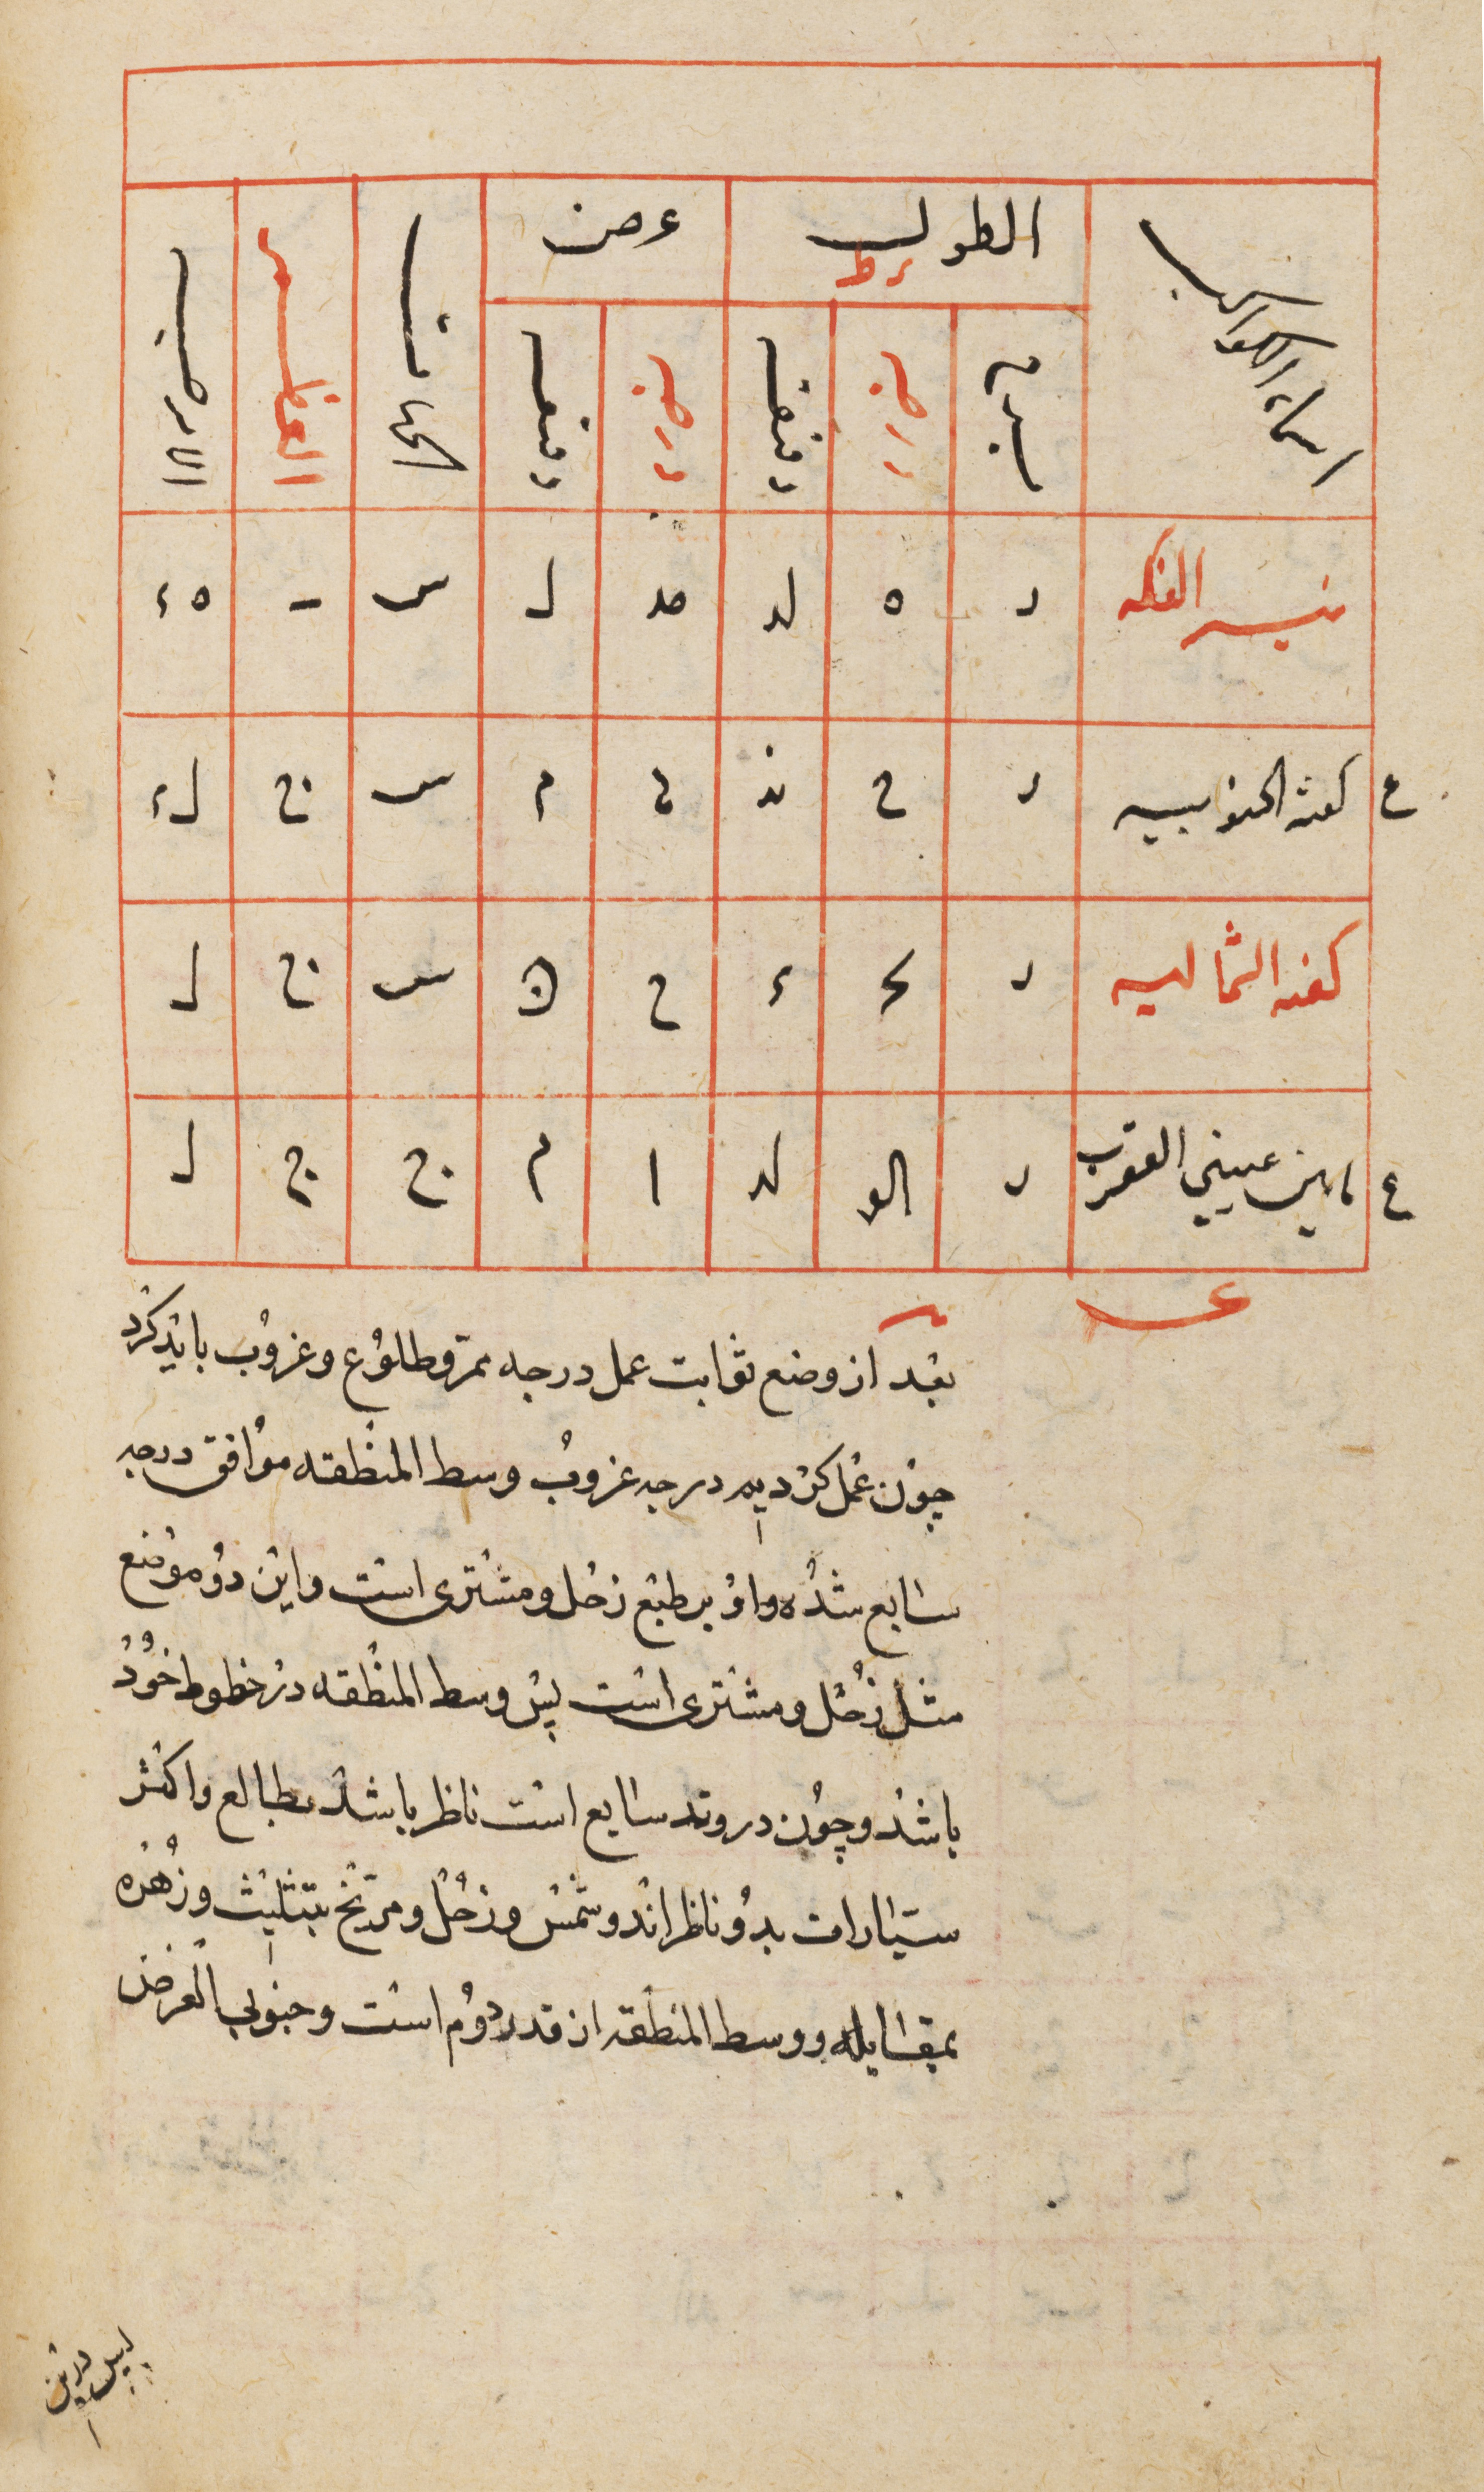 اسماء الكواكب الطول عرض الجهات العظم
برج درجه دقيقه درجه دقيقه
منير الفكه د ه لد مد ل س
ع كفته الجنوبيه د ح ند م س ج
كفته الشماليه د ح ن س ج ل
ع مابين عيني العقرب د الو لد ا م ج ج ل
بعد از وضع ثوابت عمل درجه ممر و طلوع و غروب بايد كرد
چون عمل كرديم درجه غروب وسط المنطقه موافق درجه
سابع شده و او بر طبع زحل و مشترى است و اين دو موضع
مثل زحل و مشترى است پس وسط المنطقه در خطوط خود
باشد و چون در وتد سابع است ناظر باشد بطالع و اكثر
سيّارات بدو ناظر اند و شمس و زحل و مريخ بتثليث و زهره
بمقابله و وسط المنطقه از قدر دوم است و جنوبي العرض
پس درين